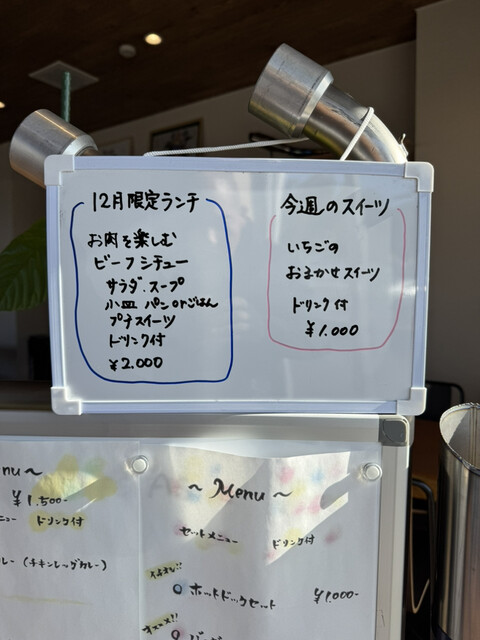 12月限定ランチ
お肉を楽しむ
ビーフシチュー
サラダ.スープ
小皿 パンorごはん
プチスイーツ
ドリンク付
¥2.000
今週のスイーツ
いちごの
おまかせスイーツ
ドリンク付
¥1.000
¥1.500-
ドリンク付
(チキンレッグカレー)
~ Menu ~
セットメニュー ドリンク付
ホットドックセット ¥1.000-